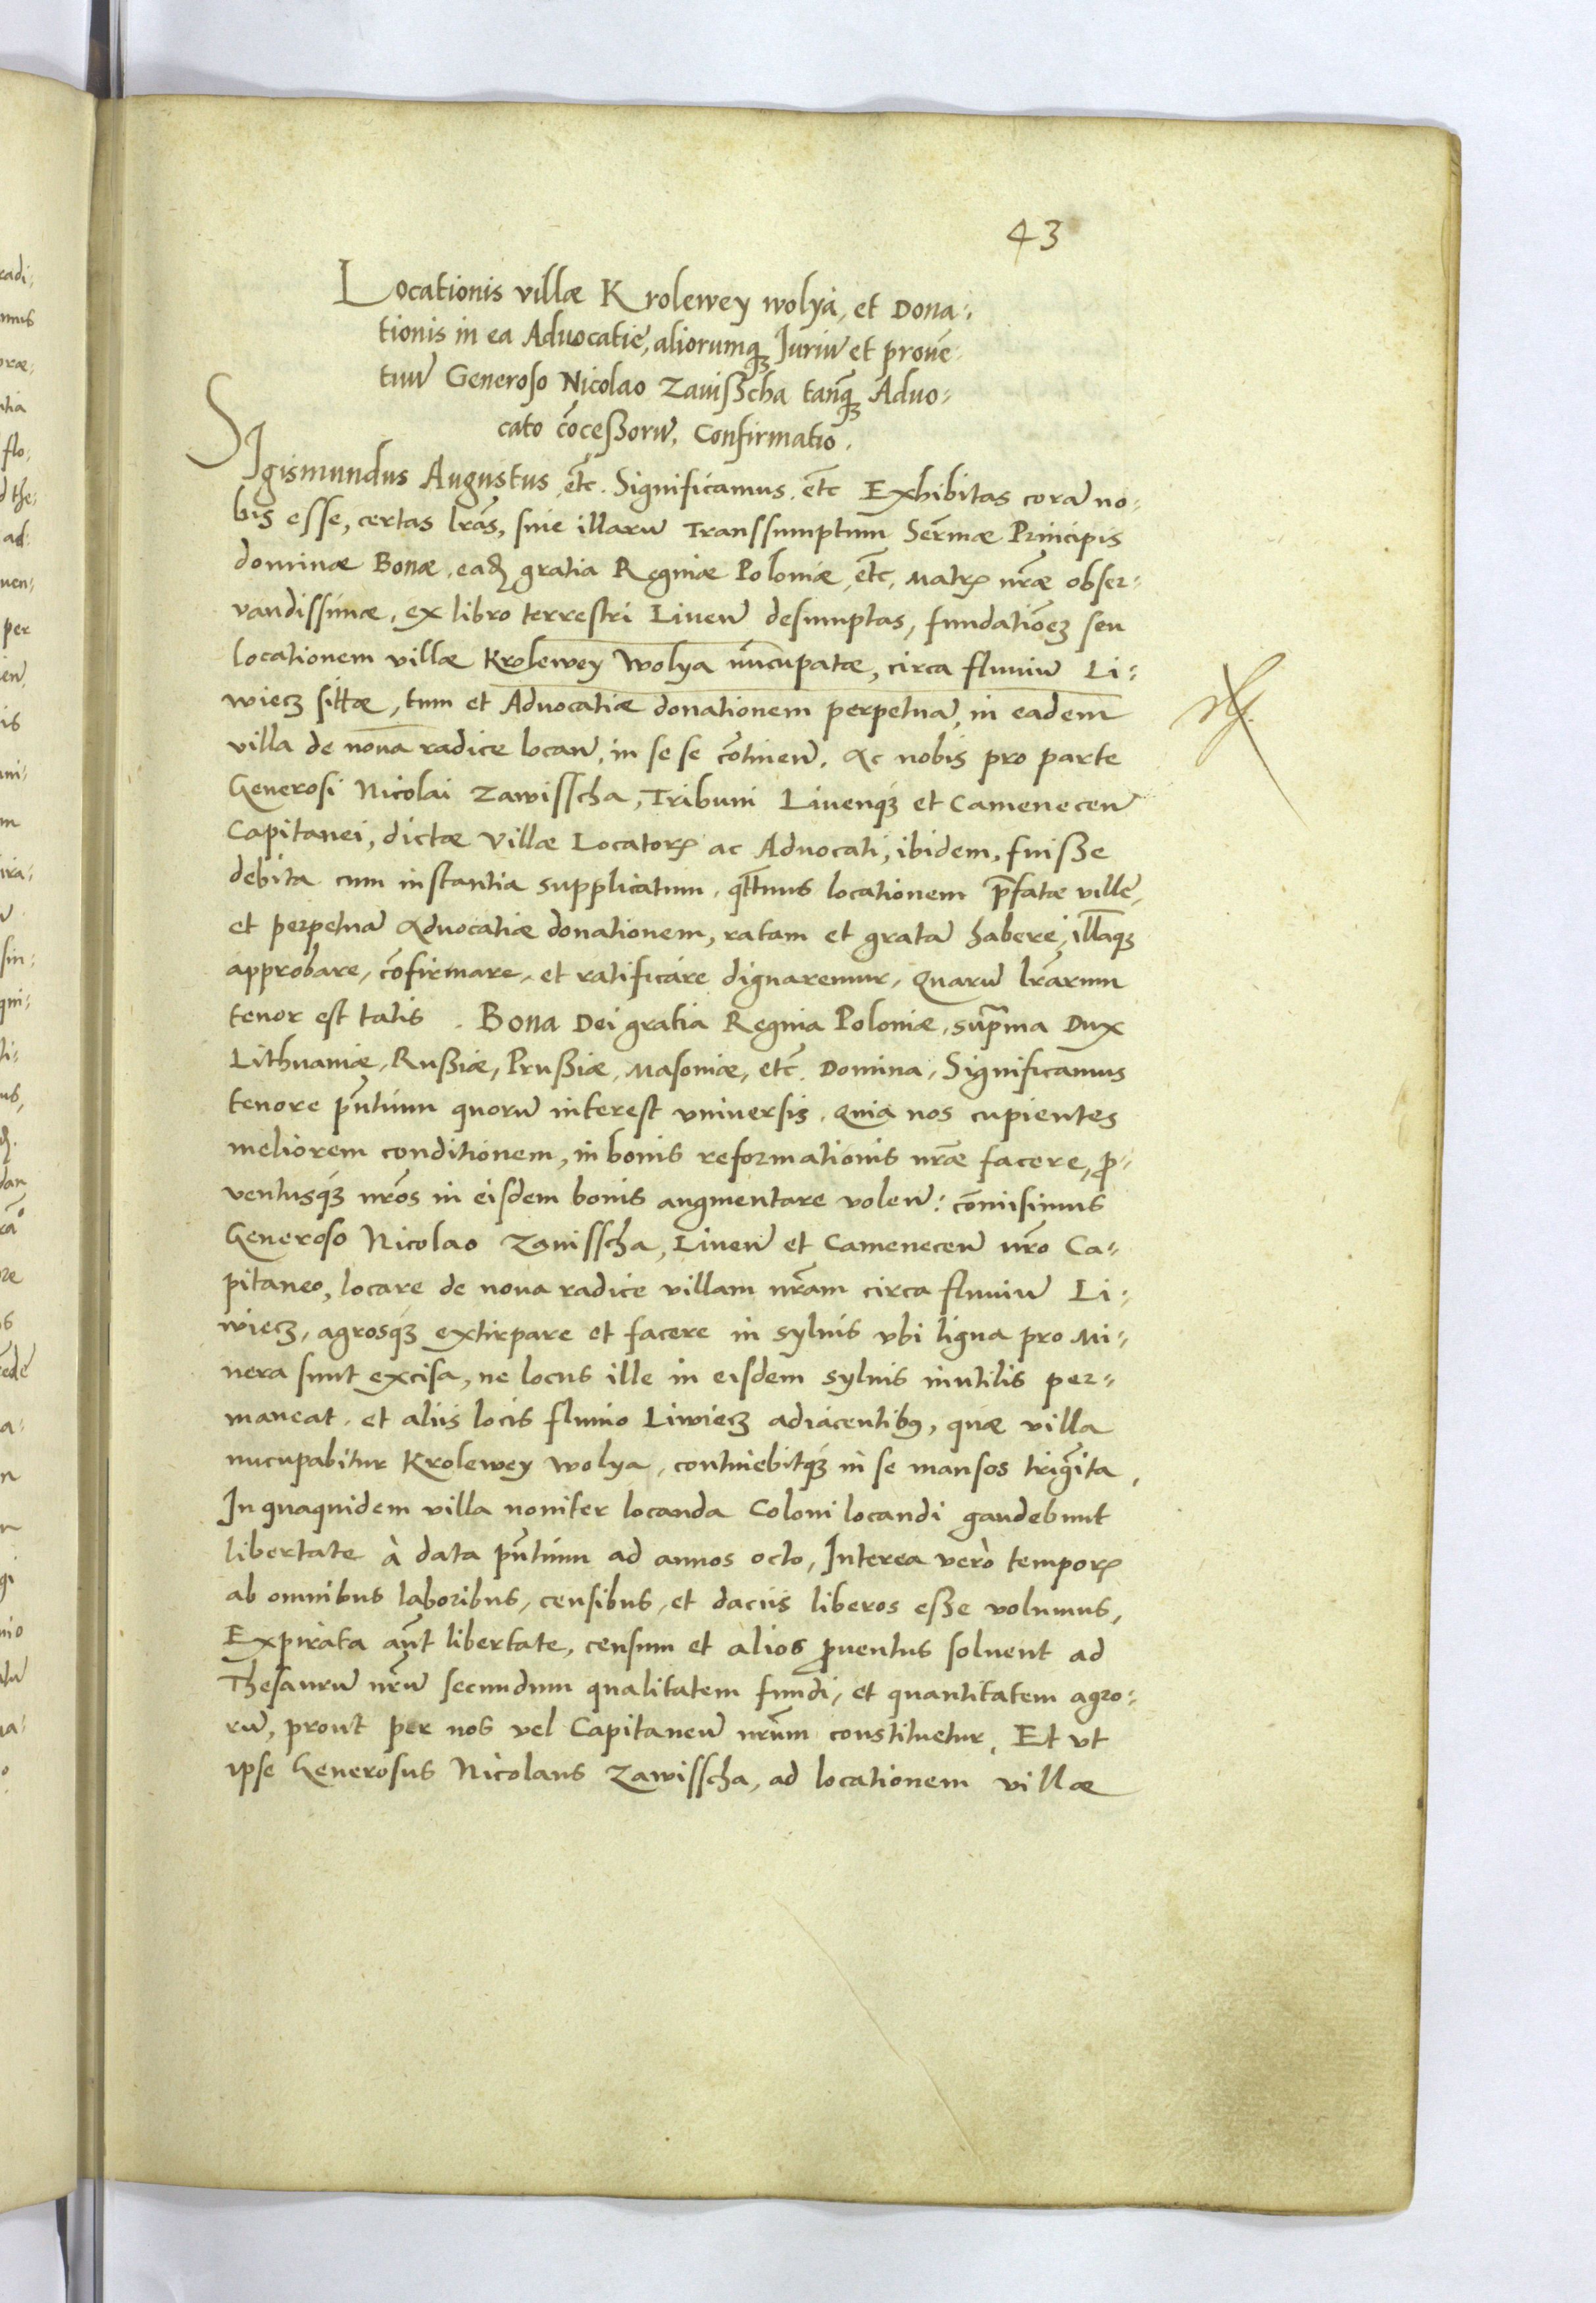 43
Locationis villæ Krolewey wolya, et Dona-
tionis in ea Advocatie, aliorumq₃ Iuriū et provē
tuū Generoso Nicolao Zavißcha tanq̃₃ Advo-
cato cōceßorū, Confirmatio.
Sigismundus Augustus, etc̃. Significamus, etc̃ Exhibitas corā no-
bis esse, certas lrãs, siue illarū Transsumptum Serm̃æ Principis
dominæ Bonæ, eadꝫ gratia Reginæ Poloniæ, etc̃, Matrꝭ nrãe obser-
vandissimæ, ex libro terrestri Liueñ desumptas, fundatiõeꝫ seu
locationem villæ Krolewey Wolya nũcupatæ, circa fluuiū Li-
wiecꝫ sittæ, tum et Advocatiæ donationem perpetuā, in eadem
villa de noua radice locañ, in se se cõtineñ. Ac nobis pro parte
Generosi Nicolai Zawisscha, Tribuni Liuenq₃ et Cameneceñ
Capitanei, dictæ Villæ Locatorꝭ ac Advocati, ibidem, fuiße
debita cum instantia supplicatum, qttnus locationem p̃fatæ ville,
et perpetuā Advocatiæ donationem, ratam et gratā habere, illãq₃
approbare, cõfirmare, et ratificare dignaremur, Quarū lrãrum
tenor est talis. Bona Dei gratia Regina Poloniæ, sup̃ma Dux
Lithuaniæ, Rußiæ, Prußiæ, Masoniæ, etc̃. Domina, Significamus
tenore pñtium quorū interest vniversis, Quia nos cupientes
meliorem conditionem, in bonis reformationis nrãe facere, p̱-
ventusq₃ nrõs in eisdem bonis augmentare voleñ: cõmisimus
Generoso Nicolao Zauisscha, Liueñ et Cameneceñ nrõ Ca-
pitaneo, locare de noua radice villam nrãm circa fluuiū Li-
wiecꝫ, agrosq₃ extirpare et facere in syluis vbi ligna pro Mi-
nera sunt excisa, ne locus ille in eisdem syluis inutilis per-
maneat, et aliis locis fluuio Liwiecꝫ adiacentibꝰ, quæ villa
nucupabitur Krolewey wolya, continebitq₃ in se mansos trigĩta,
In quaquidem villa noviter locanda Coloni locandi gaudebunt
libertate à data pñtium ad annos octo, Interea verò temporꝭ
ab omnibus laboribus, censibus, et daciis liberos eße volumus,
Expirata aũt libertate, censum et alios p̱uentus soluent ad
Thesaurū nrũ secundum qualitatem fundi, et quantitatem agro-
rū, prout per nos vel Capitaneū nrũm constituetur, Et vt
ipse Generosus Nicolaus Zawisscha, ad locationem villæ